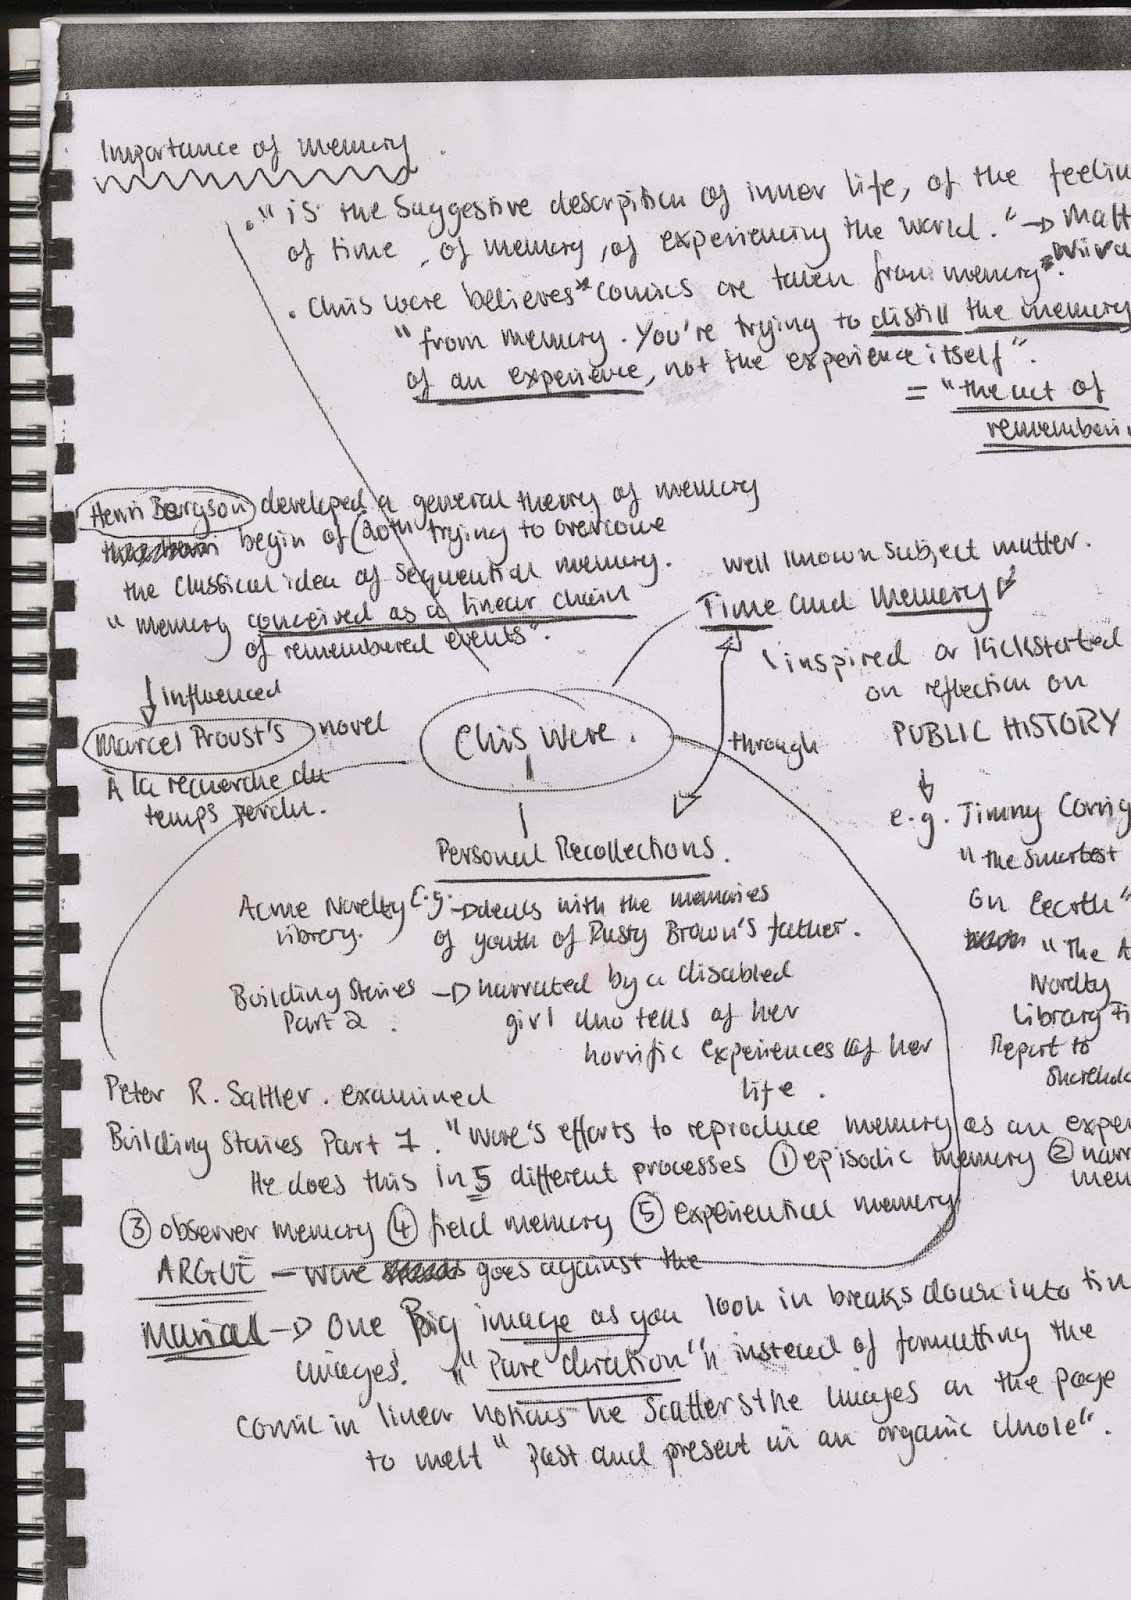 Importance of memory.
. " is the suggestive description of inner life, of the feelin
of time, of memory, of experiencing the world." → Matt
. Chris ware believes "comics are taken from memory".
"from memory. You're trying to distill the memory
of an experience, not the experience itself".
= "the act of
rememberi
Henri Bergson developed a general theory of memory
begin of 20th trying to overcome
the classical idea of sequential memory.
" memory conceived as a linear chain
of remembered events".
↓ influenced
Marcel Proust's novel
À la recherche du
temps perdu.
Chis Ware.
well known subject matter.
Time and memory
inspired or kickstarted
on reflection on
PUBLIC HISTORY
↓
e.g. Jimmy Corrig
"the smartest
on Earth"
"The A
Novelty
Library Fi
Report to
Sharehold
through
Personal Recollections.
Acme Novelty e.g. → deals with the memories
library. of youth of Rusty Brown's father.
Building Stories → narrated by a disabled
Part 2. girl who tells of her
horrific experiences of her
life.
Peter R. Sattler. examined
Building Stories Part 7. "Ware's efforts to reproduce memory as an expe
He does this in 5 different processes ① episodic memory ② narr
mem
③ observer memory ④ field memory ⑤ experiential memory
ARGUE - Ware goes against the
→ One Big image as you look in breaks down into tin
images. "Pure duration" instead of formatting the
comic in linear notions he scatters the images on the page
to melt "past and present in an organic whole".